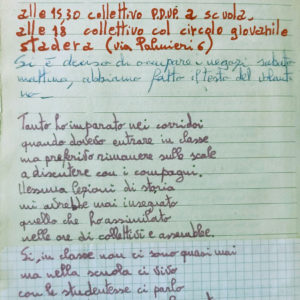 alle 15,30 collettivo P.D.U.P. a scuola,
alle 18 collettivo col circolo giovanile
stadera (via Palmieri 6)
Si è deciso di occupare i negozi sabato
mattina, abbiamo fatto il testo del volanti
no—
Tanto ho imparato nei corridoi
quando dovevo entrare in classe
ma preferivo rimanere sulle scale
a discutere con i compagni.
Nessuna lezioni di storia
mi avrebbe mai insegnato
quello che ho assimilato
nelle ore di collettivi e assemblee.
Si, in classe non ci sono quasi mai
ma nella scuola ci vivo
con le studentesse ci parlo